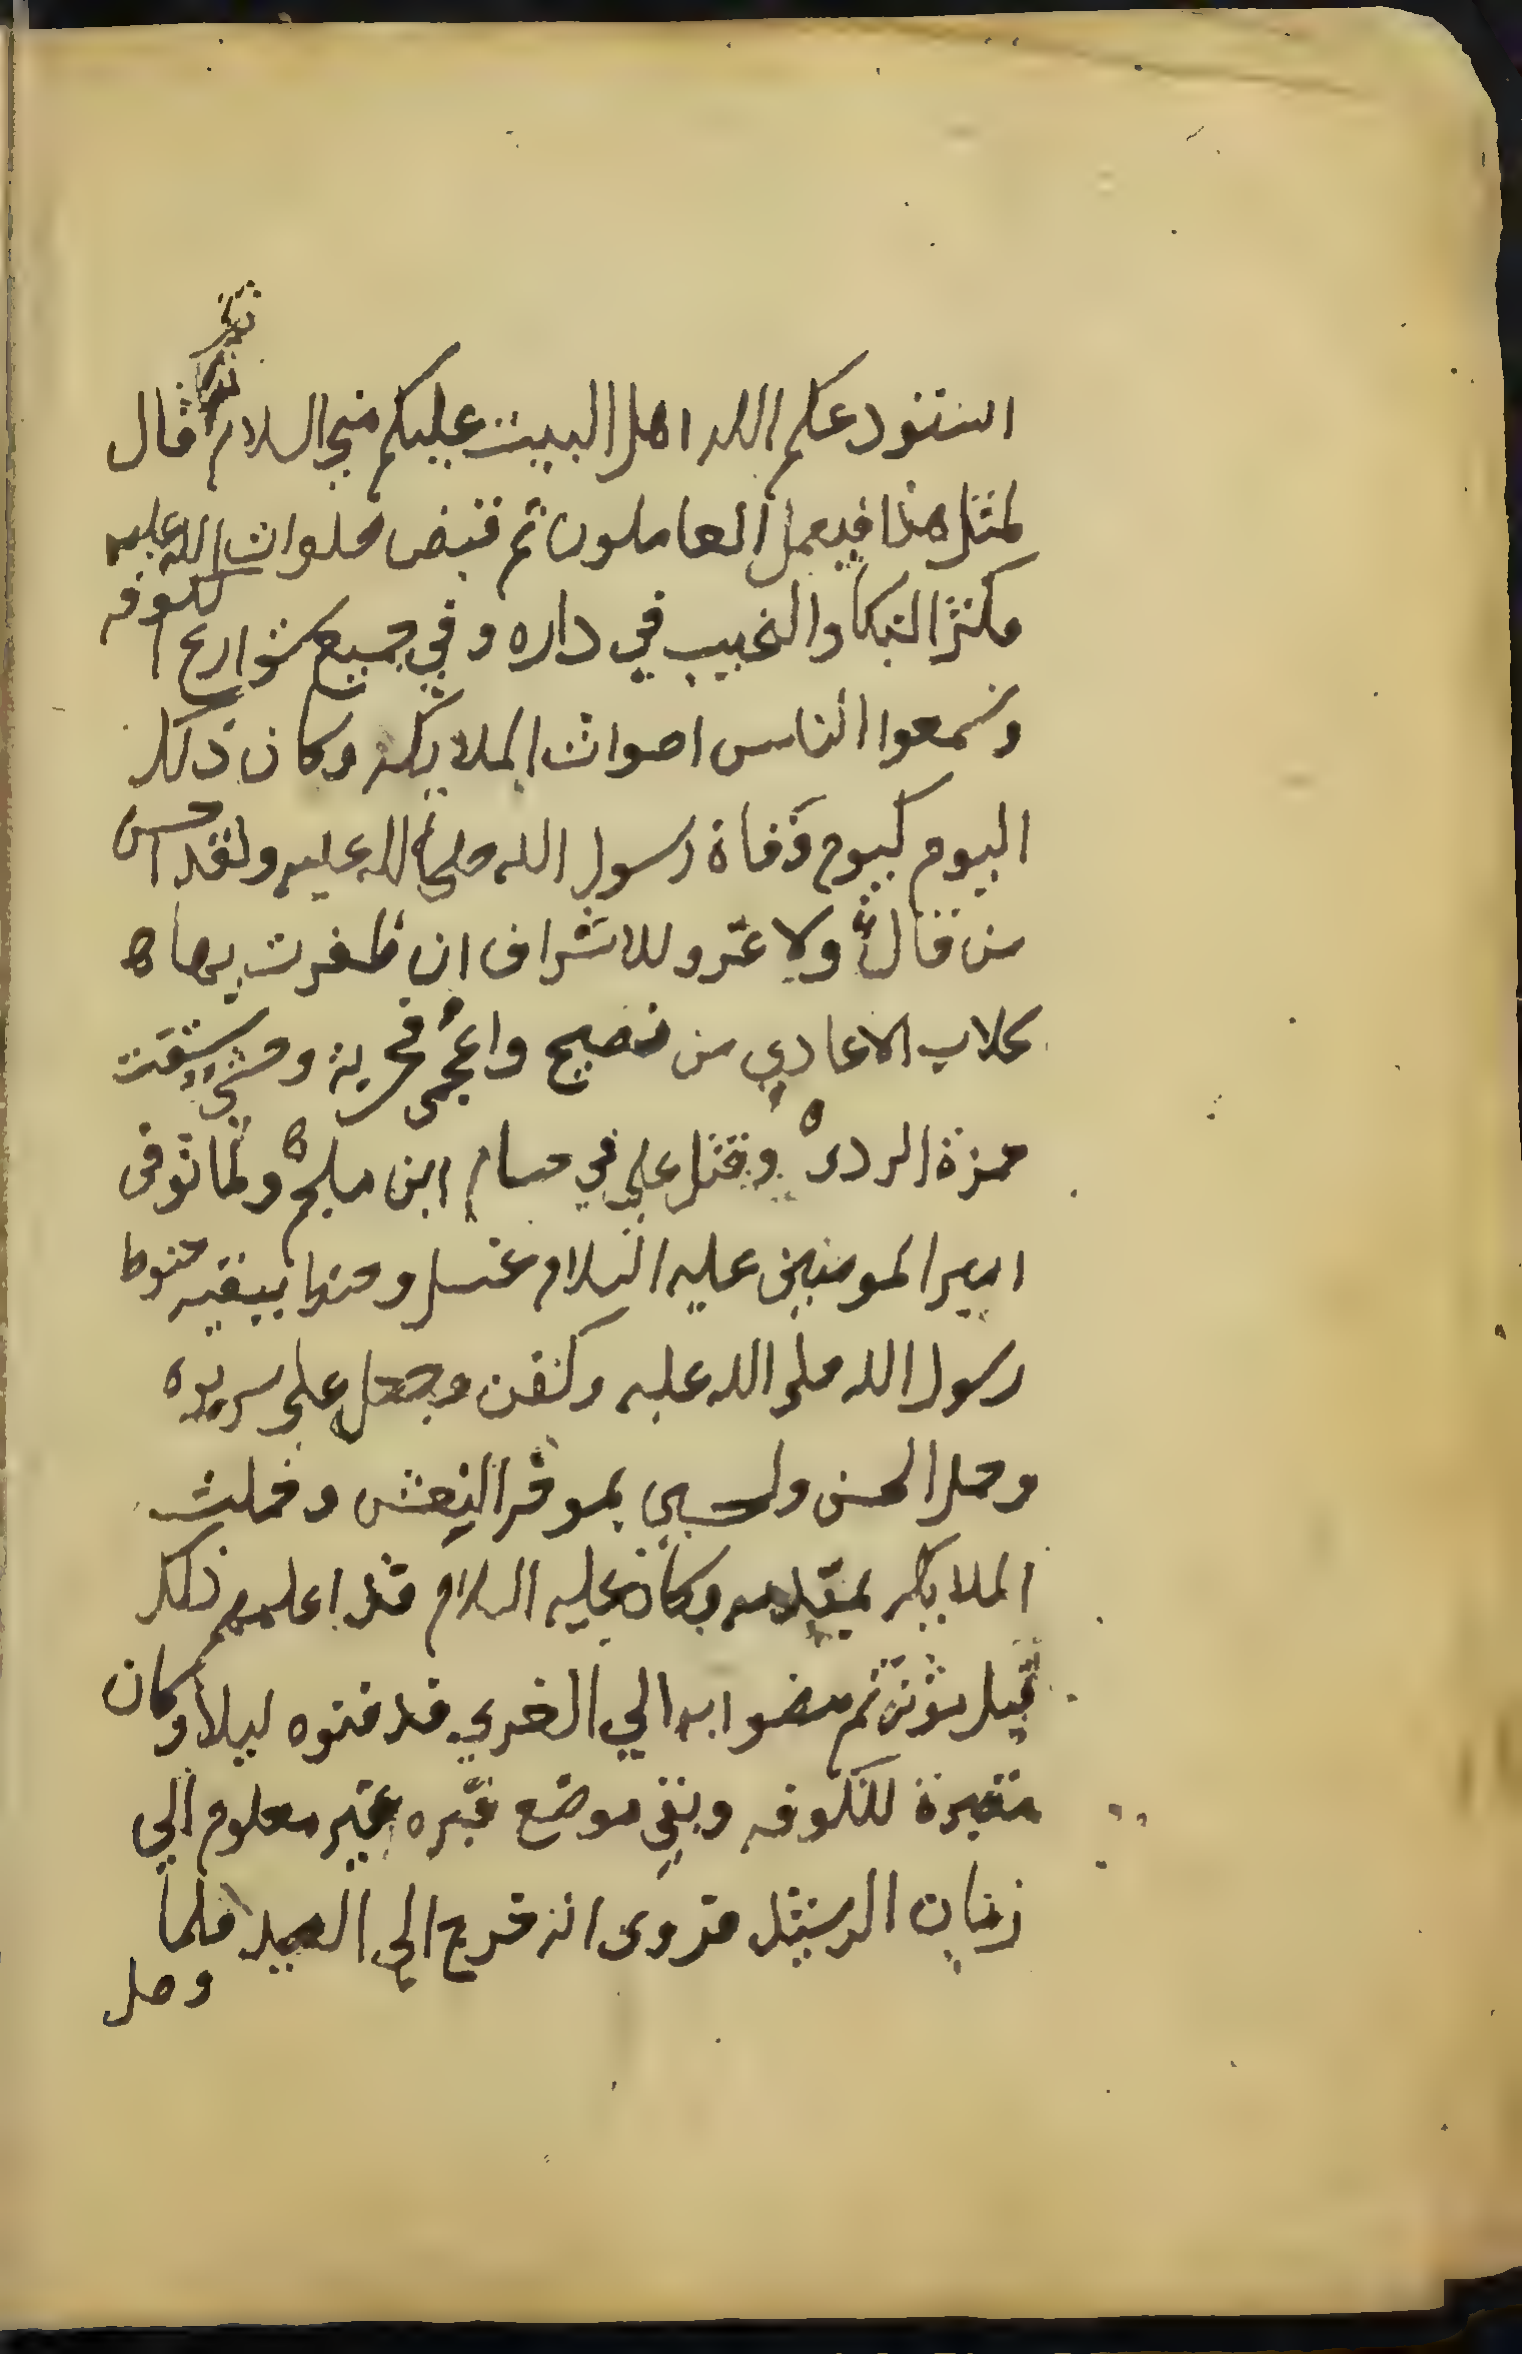 ثم
استودعكم الله اهل البيت عليكم مني السلام قال
لمثل هذا فيعمل العاملون ثم قبض صلوات الله عليه
فكثر البكا والنحيب في داره وفي جميع شوارع الكوفه
وسمعوا الناس اصوات الملايكه وكان ذلك
اليوم كيوم وفاة رسول الله صلى الله عليه ولقد احسن
من قال ولا غرو للاشراف ان ظفرت بها
كلاب الاعادي من فصيح واعجمي فحربة وحشي سقت
حمزة الردى وقتل علي في حسام ابن ملجم ولما توفى
امير المومنين عليه السلام غسل وحنط ببقيه حنوط
رسول الله صلى الله عليه وكفن وجعل على سريره
وحمل الحسن والحسين بموخر النعش وحملت
الملايكه بمقدمه وكان عليه السلام قد اعلمهم ذلك
قبل موته ثم مضوا به الي الغري فدفنوه ليلا وكان
مقبرة للكوفه وبقي موضع قبره غير معلوم الى
زمان الرشيد فروى انه خرج الى الصيد فلما
وصل